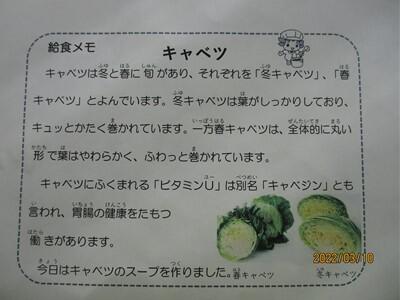 給食メモ
キャベツ
キャベツは冬と春に旬があり、それぞれを「冬キャベツ」、「春
キャベツ」とよんでいます。冬キャベツは葉がしっかりしており、
キュッとかたく巻かれています。一方春キャベツは、全体的に丸い
形で葉はやわらかく、ふわっと巻かれています。
キャベツにふくまれる「ビタミンU」は別名「キャベジン」とも
言われ、胃腸の健康をたもつ
働きがあります。
今日はキャベツのスープを作りました。
春キャベツ
冬キャベツ
2022/03/10